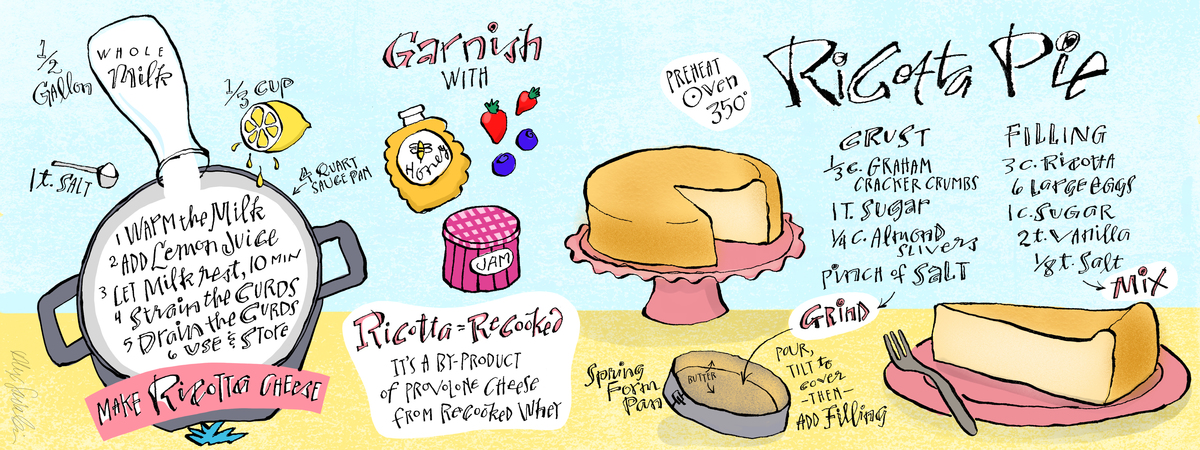 1/2
Gallon
WHOLE
Milk
1/3 CUP
1 t. SALT
4 QUART
SAUCE PAN
1 WARM the Milk
2 ADD Lemon Juice
3 LET Milk rest, 10 MIN
4 Strain the CURDS
5 Drain the CURDS
6 USE & Store
MAKE Ricotta CHEESE
Garnish
WITH
Honey
JAM
Ricotta = ReCooked
IT'S A BY-PRODUCT
of PROVOLONE CHEESE
FROM ReCOOKED WHEY
PREHEAT
Oven
350°
Ricotta Pie
CRUST
1/3 C. GRAHAM
CRACKER CRUMBS
1 T. Sugar
1/4 C. Almond
SLIVERS
Pinch of SALT
GRIND
FILLING
3 C. Ricotta
6 Large eggs
1 C. SUGAR
2 t. Vanilla
1/8 t. Salt
MIX
Spring
Form
Pan
BUTTER
POUR,
TILT to
cover
-THEN-
ADD Filling